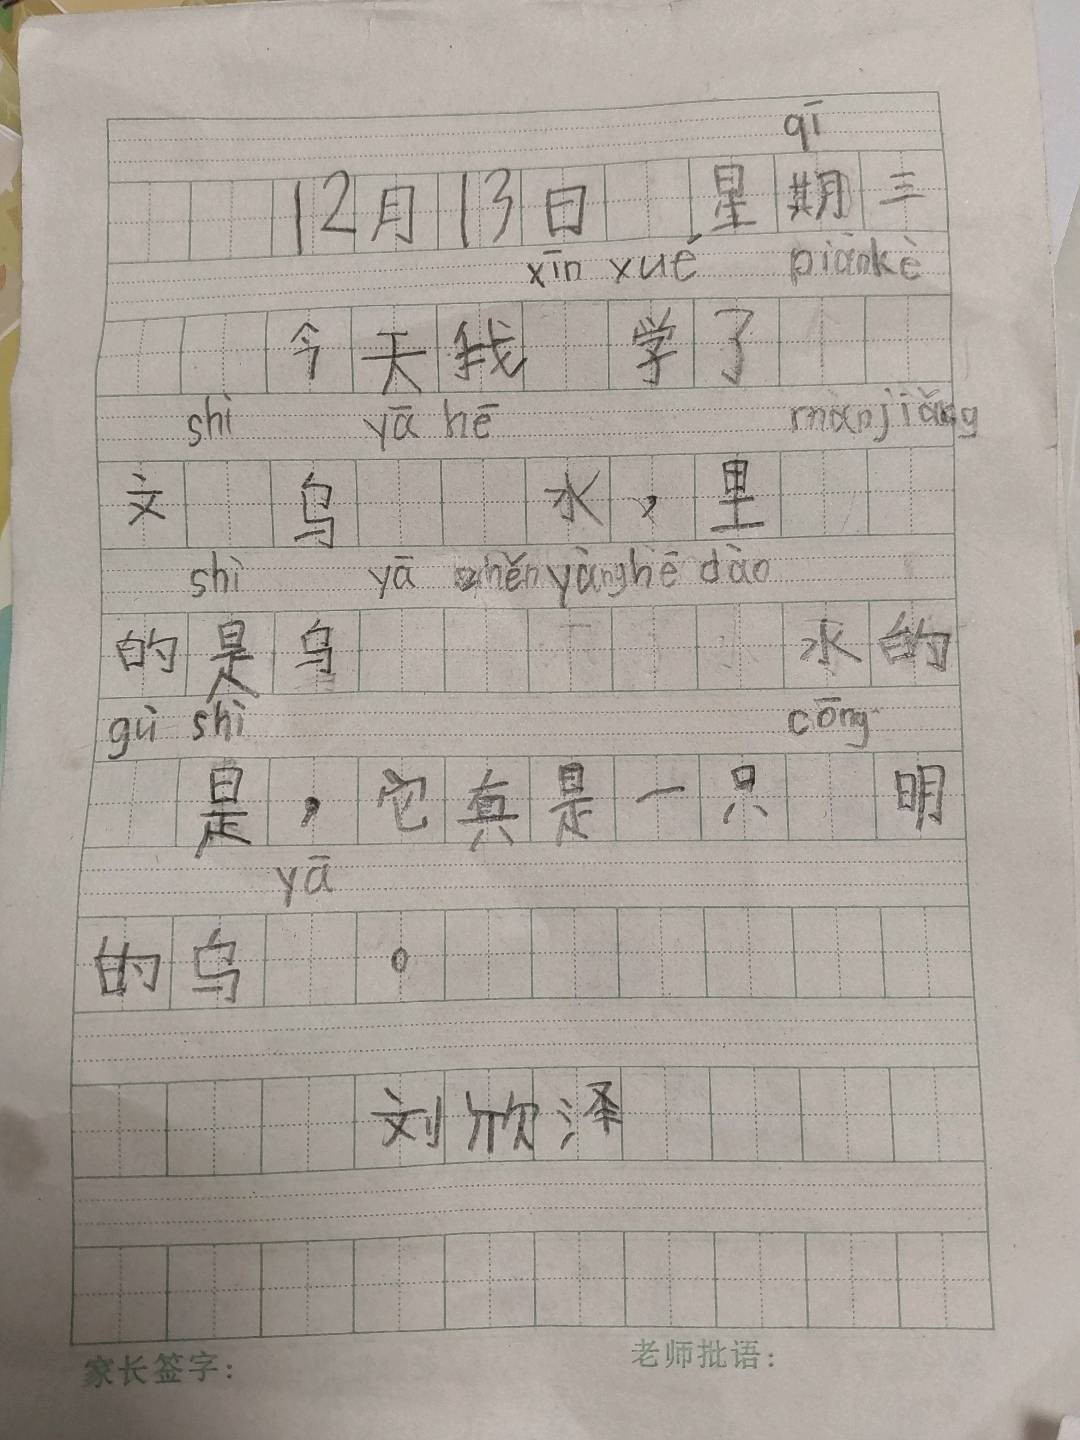 qī
12月13日 星期三
xīn xué piānkè
今天我 学了
shì yā hē miànjiǎng
文 乌 水，里
shì yā zhěnyànghē dào
的是乌 水的
gù shì cōng
是，它真是一只 明
yā
的乌 。
刘欣泽
家长签字：
老师批语：